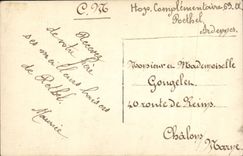 C. M
Hop. Complémentaire 69. A
Rethel
Ardennes
Recevez
de votre frère
ses meilleurs baisers
de Rethel
Maurice
Monsieur et Mademoiselle
Gougelet
40 route de Reims
Châlons
Marne